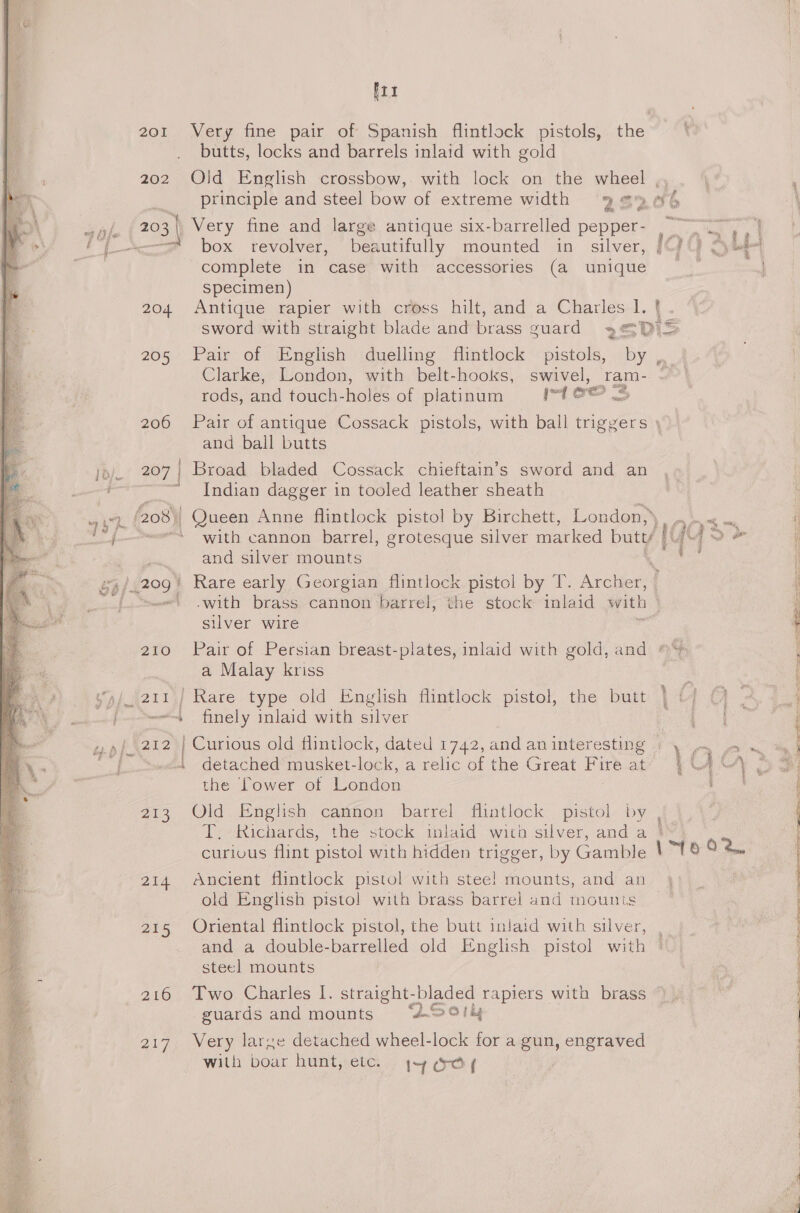 11
201 Very fine pair of Spanish flintlock pistols, the
butts, locks and barrels inlaid with gold
202 Old English crossbow, with lock on the wheel
principle and steel bow of extreme width
203 Very fine and large antique six-barrelled pepper-
box revolver, beautifully mounted in silver,
complete in case with accessories (a unique
specimen)
204 Antique rapier with cross hilt, and a Charles I.
sword with straight blade and brass guard
205 Pair of English duelling flintlock pistols, by
Clarke, London, with belt-hooks, swivel, ram-
rods, and touch-holes of platinum
206 Pair of antique Cossack pistols, with ball triggers
and ball butts
207 Broad bladed Cossack chieftain's sword and an
Indian dagger in tooled leather sheath
208 Queen Anne flintlock pistol by Birchett, London,
with cannon barrel, grotesque silver marked butt
and silver mounts
209 Rare early Georgian flintlock pistol by T. Archer,
with brass cannon barrel, the stock inlaid with
silver wire
210 Pair of Persian breast-plates, inlaid with gold, and
a Malay kriss
211 Rare type old English flintlock pistol, the butt
finely inlaid with silver
212 Curious old flintlock, dated 1742, and an interesting
detached musket-lock, a relic of the Great Fire at
the Tower of London
213 Old English cannon barrel flintlock pistol by
T. Richards, the stock inlaid with silver, and a
curious flint pistol with hidden trigger, by Gamble
214 Ancient flintlock pistol with steel mounts, and an
old English pistol with brass barrel and mounts
215 Oriental flintlock pistol, the butt inlaid with silver,
and a double-barrelled old English pistol with
steel mounts
216 Two Charles I. straight-bladed rapiers with brass
guards and mounts
217 Very large detached wheel-lock for a gun, engraved
with boar hunt, etc.